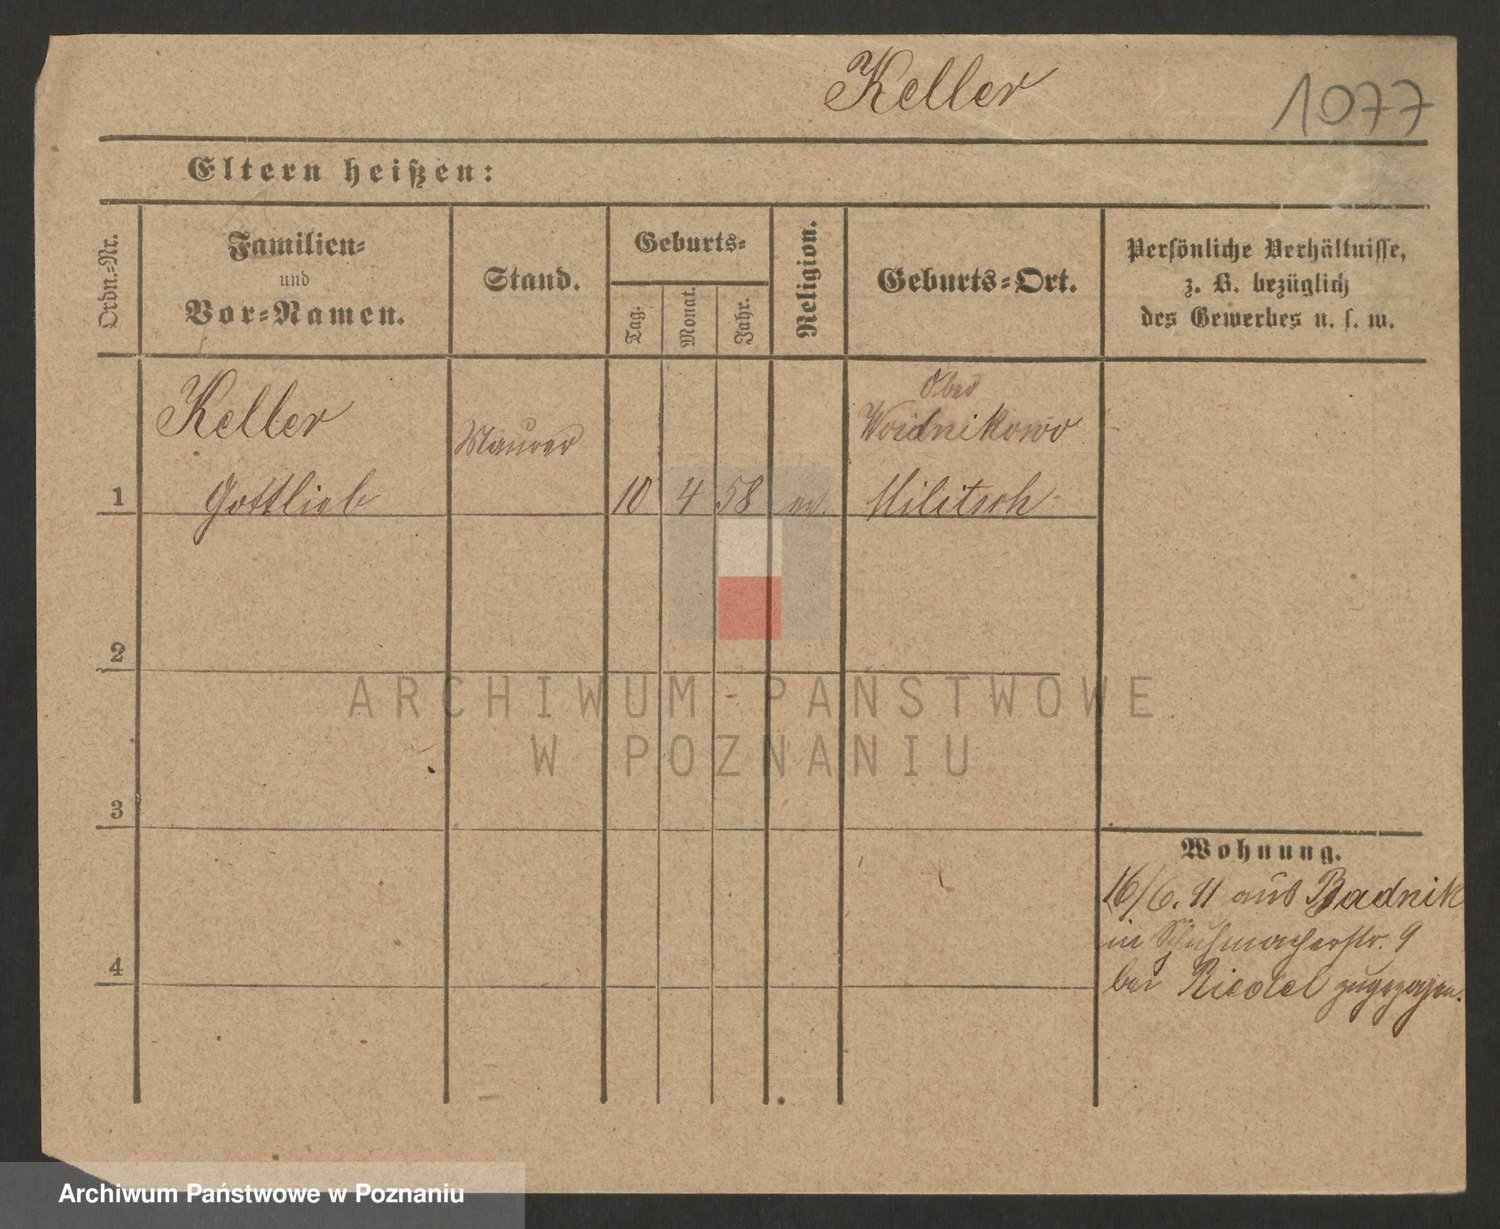 Keller
1077
Eltern heißen:
Ordn.-Nr.
Familien-
und
Vor-Namen.
Stand.
Geburts-
Tag.
Monat.
Jahr.
Religion.
Geburts-Ort.
Persönliche Verhältnisse,
z. B. bezüglich
des Gewerbes u. s. w.
Keller
Maurer
Ober
Woidnikowo
1
Gottlieb
10 4 58 ev.
Militsch
2
ARCHIWUM PAŃSTWOWE
W POZNANIU
3
Wohnung.
16/6. 11 aus Badnik
in Schuhmacherstr. 9
4
bei zugezogen.
Archiwum Państwowe w Poznaniu